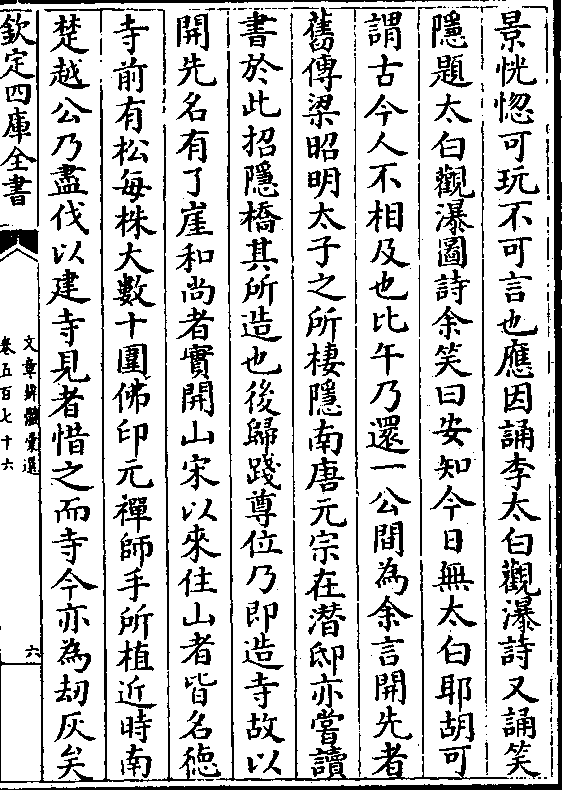 景恍惚可玩不可言也應因誦李太白觀瀑詩又誦笑
隱題太白觀瀑圖詩余笑曰安知今日無太白耶胡可
謂古今人不相及也比午乃還一公間為余言開先者
舊傳梁昭明太子之所棲隱南唐元宗在潛邸亦嘗讀
書於此招隱橋其所造也後歸踐尊位乃即造寺故以
開先名有了崖和尚者實開山宋以來住山者皆名德
寺前有松每株大數十圍佛印元禪師手所植近時南
楚越公乃盡伐以建寺見者惜之而寺今亦為刧灰矣
欽定四庫全書
文章辨體彙選
卷五百七十六
六